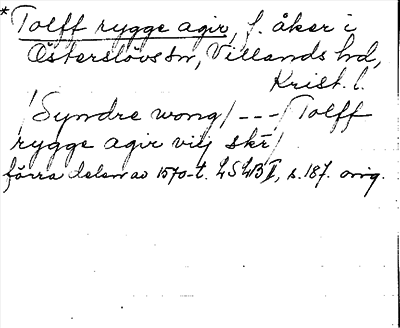 *Tolff rygge agir, f. åker i
Österslövs sn, Villands hd,
Krist. l.
/Syndre wong/ --- /Tolff
rygge agir vilj skr/
förra delen av 1570-t. LSLB II, s. 187. orig.